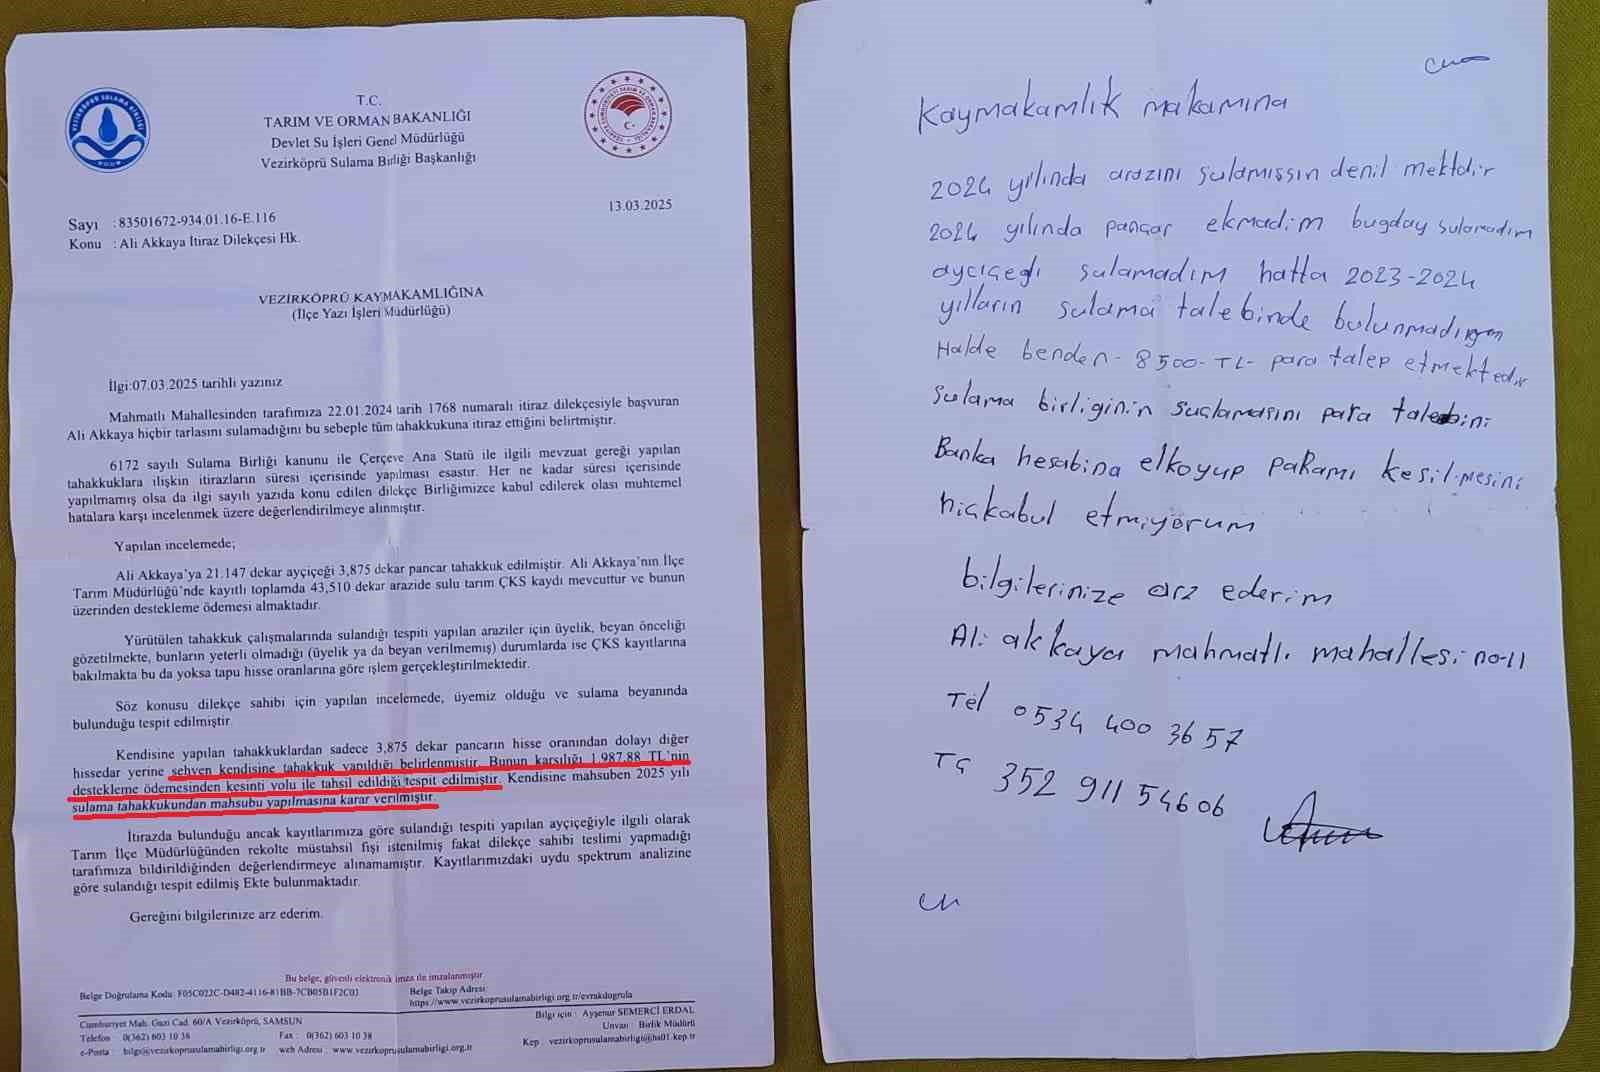 VEZİRKÖPRÜ SULAMA BİRLİĞİ
T.C.
TARIM VE ORMAN BAKANLIĞI
Devlet Su İşleri Genel Müdürlüğü
Vezirköprü Sulama Birliği Başkanlığı
13.03.2025
Sayı : 83501672-934.01.16-E.116
Konu : Ali Akkaya İtiraz Dilekçesi Hk.
VEZİRKÖPRÜ KAYMAKAMLIĞINA
(İlçe Yazı İşleri Müdürlüğü)
İlgi:07.03.2025 tarihli yazınız
Mahmatlı Mahallesinden tarafımıza 22.01.2024 tarih 1768 numaralı itiraz dilekçesiyle başvuran
Ali Akkaya hiçbir tarlasını sulamadığını bu sebeple tüm tahakkukuna itiraz ettiğini belirtmiştir.
6172 sayılı Sulama Birliği kanunu ile Çerçeve Ana Statü ile ilgili mevzuat gereği yapılan
tahakkuklara ilişkin itirazların süresi içerisinde yapılması esastır. Her ne kadar süresi içerisinde
yapılmamış olsa da ilgi sayılı yazıda konu edilen dilekçe Birliğimizce kabul edilerek olası muhtemel
hatalara karşı incelenmek üzere değerlendirilmeye alınmıştır.
Yapılan incelemede;
Ali Akkaya'ya 21.147 dekar ayçiçeği 3,875 dekar pancar tahakkuk edilmiştir. Ali Akkaya'nın İlçe
Tarım Müdürlüğü'nde kayıtlı toplamda 43,510 dekar arazide sulu tarım ÇKS kaydı mevcuttur ve bunun
üzerinden destekleme ödemesi almaktadır.
Yürütülen tahakkuk çalışmalarında sulandığı tespiti yapılan araziler için üyelik, beyan önceliği
gözetilmekte, bunların yeterli olmadığı (üyelik ya da beyan verilmemiş) durumlarda ise ÇKS kayıtlarına
bakılmakta bu da yoksa tapu hisse oranlarına göre işlem gerçekleştirilmektedir.
Söz konusu dilekçe sahibi için yapılan incelemede, üyemiz olduğu ve sulama beyanında
bulunduğu tespit edilmiştir.
Kendisine yapılan tahakkuklardan sadece 3,875 dekar pancarın hisse oranından dolayı diğer
hissedar yerine sehven kendisine tahakkuk yapıldığı belirlenmiştir. Bunun karşılığı 1.987.88 TL'nin
destekleme ödemesinden kesinti yolu ile tahsil edildiği tespit edilmiştir. Kendisine mahsuben 2025 yılı
sulama tahakkukundan mahsubu yapılmasına karar verilmiştir.
İtirazda bulunduğu ancak kayıtlarımıza göre sulandığı tespiti yapılan ayçiçeğiyle ilgili olarak
Tarım İlçe Müdürlüğünden rekolte müstahsil fişi istenilmiş fakat dilekçe sahibi teslimi yapmadığı
tarafımıza bildirildiğinden değerlendirmeye alınamamıştır. Kayıtlarımızdaki uydu spektrum analizine
göre sulandığı tespit edilmiş Ekte bulunmaktadır.
Gereğini bilgilerinize arz ederim.
Bu belge, güvenli elektronik imza ile imzalanmıştır
Belge Doğrulama Kodu: F05C022C-D482-4116-81BB-7CB05B1F2C03
Belge Takip Adresi:
https://www.vezirkoprusulamabirligi.org.tr/evrakdogrula
Cumhuriyet Mah. Gazi Cad. 60/A Vezirköprü, SAMSUN
Telefon : 0(362) 603 10 38 Fax : 0(362) 603 10 38
e-Posta : bilgi@vezirkoprusulamabirligi.org.tr web Adresi : www.vezirkoprusulamabirligi.org.tr
Bilgi için : Ayşenur SEMERCİ ERDAL
Unvan : Birlik Müdürü
Kep : vezirkoprusulamabirligi@hs01.kep.tr
Kaymakamlık makamına
2024 yılında arazını sulamıssın denil mektdir
2024 yılında pançar ekmadim bugday sulamadım
ayçıçegı sulamadım hatta 2023-2024
yılların sulama talebinde bulunmadıgım
Halde benden - 8500-TL- para talep etmektedir
Sulama birliginin suçlamasını para talebini
Banka hesabina elkoyup paRamı kesilmesini
hiçkabul etmiyorum
bilgilerinize arz ederim
Ali akkaya mahmatlı mahallesi no-11
Tel 0534 400 3657
Tç 352 911 54606